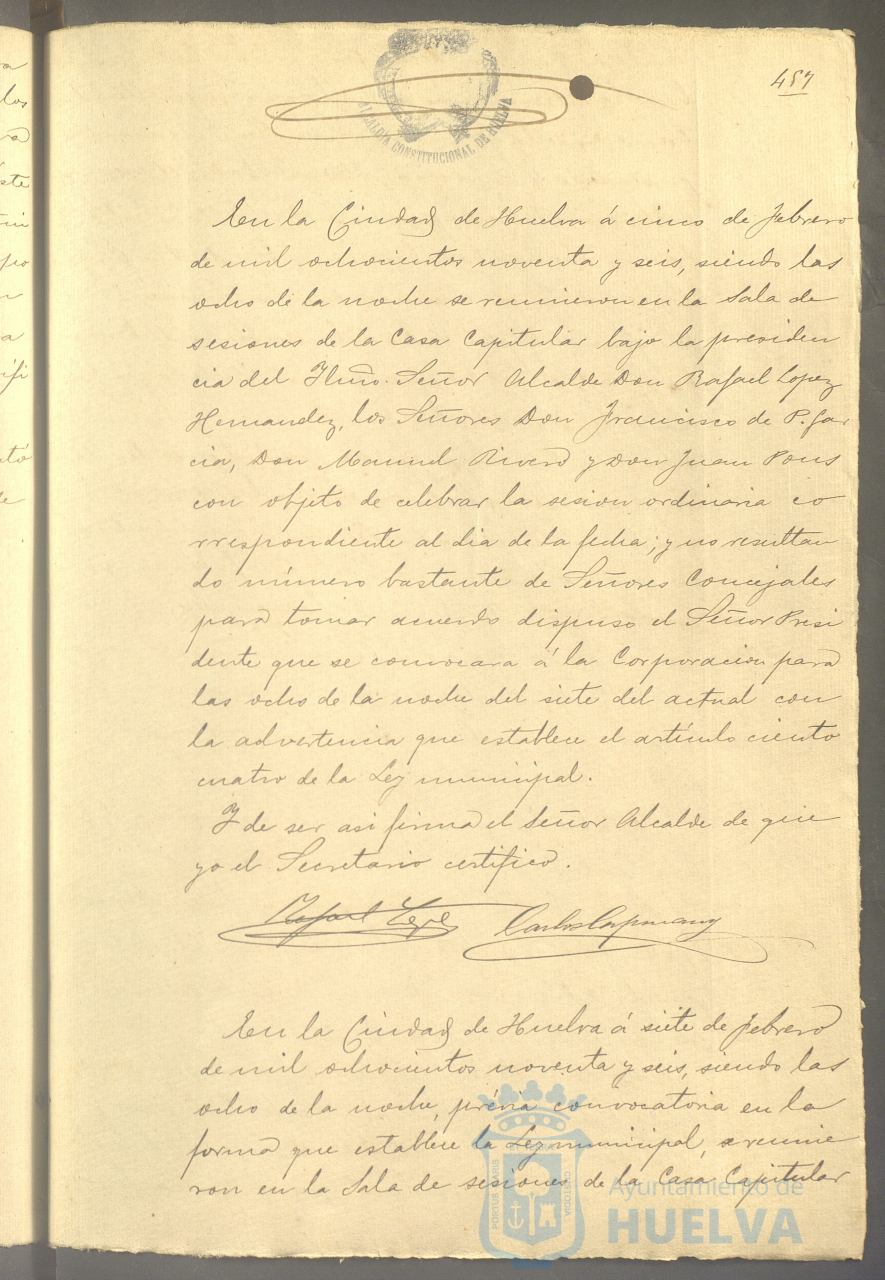 457
ALCALDIA CONSTITUCIONAL DE HUELVA
En la Ciudad de Huelva á cinco de febrero
de mil ochocientos noventa y seis, siendo las
ocho de la noche se reunieron en la Sala de
sesiones de la Casa Capitular bajo la presiden
cia del Ylmo. Señor Alcalde Don Rafael Lopez
Hernandez, los Señores Don Francisco de P. Gar
cia, Don Manuel Rivero y Don Juan Pons
con objeto de celebrar la sesion ordinaria co
rrespondiente al dia de la fecha; y no resultan
do número bastante de Señores Concejales
para tomar acuerdo dispuso el Señor Presi
dente que se convocara á la Corporacion para
las ocho de la noche del siete del actual con
la advertencia que establece el artículo ciento
cuatro de la Ley municipal.
Y de ser asi firma el Señor Alcalde de que
yo el Secretario certifico.
Rafael Lopez Carlos Capmany
En la Ciudad de Huelva á siete de febrero
de mil ochocientos noventa y seis, siendo las
ocho de la noche, prévia convocatoria en la
forma que establece la Ley municipal, se reunie
ron en la Sala de sesiones de la Casa Capitular
PORTUS MARIS CUSTODIA
Ayuntamiento de
HUELVA